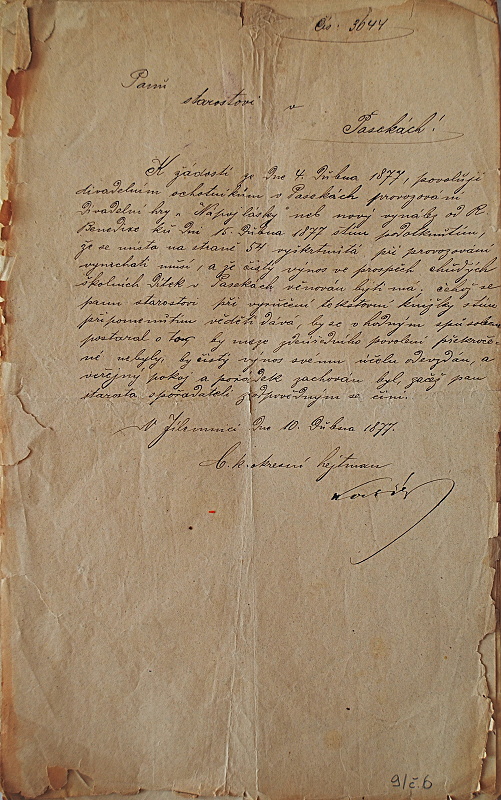 Čís. 3644
Panu
starostovi v
Pasekách!
K žádosti ze dne 4. Dubna 1877, povoluji
divadelním ochotníkům v Pasekách provozování
Divadelní hry „Nápoj lásky" neb nový vynález od R.
Benedixe ku dni 15. Dubna 1877 s tím podotknutím,
že se místa na straně 54 vyškrtnutá při provozování
vynechati musí, a že čistý výnos ve prospěch chudých
školních Dítek v Pasekách věnován býti má. Čehož se
panu starostovi při vrácení textové knížky s tím
připomenutím věděti dává, by se vhodným způsobem
postaral o to, by meze zdejšího povolení překročeny
nebyly, by čistý výnos svému účelu odevzdán, a
veřejný pokoj a pořádek zachován byl, začež pan
starosta, spořadateli zodpovědným se činí.
V Jilemnici dne 10. Dubna 1877.
C. k. okresní hejtman
9/č.6